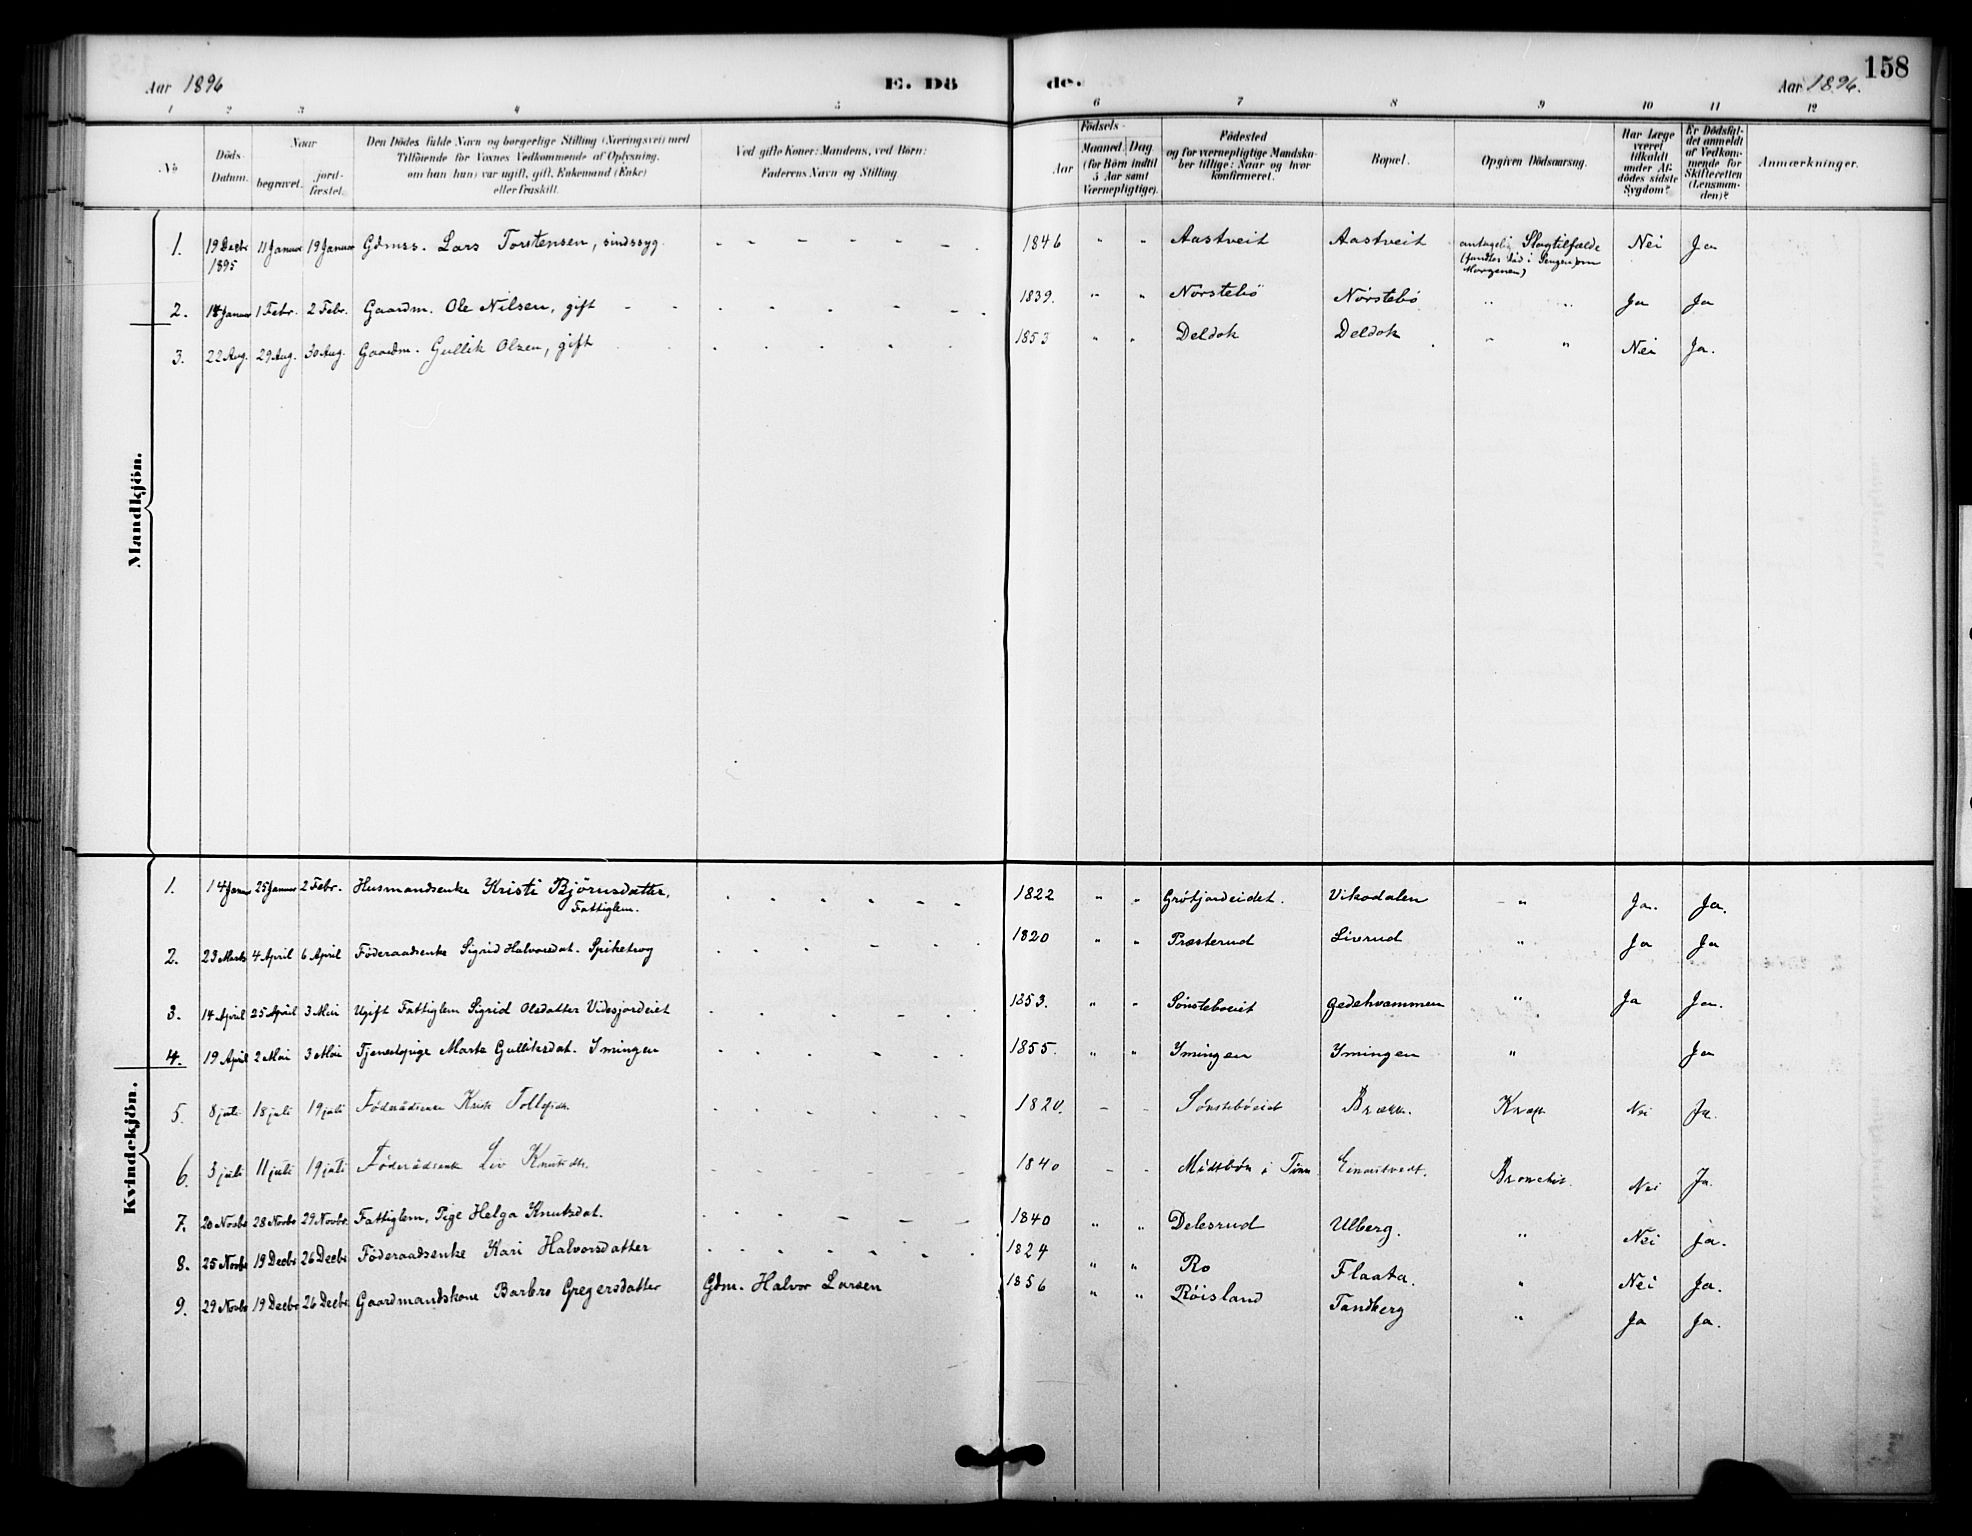 158
Aar 1896
E. Dö
de.
Aar 1896.
1 2 3 4 5 6 7 8 9 10 11 12
No
Döds-
Datum.
Naar
begravet.
jord-
fæstet.
Den Dödes fulde Navn og borgerlige Stilling (Næringsvei) med
Tilföiende for Voxnes Vedkommende af Oplysning,
om han (hun) var ugift, gift, Enkemand (Enke)
eller fraskilt.
Ved gifte Koner: Mandens, ved Börn:
Faderens Navn og Stilling
Födsels-
Aar
Maaned. Dag
(for Börn indtil
5 Aar samt
Værnepligtige).
Födested
og for værnepligtige Mandska-
ber tillige: Naar og hvor
konfirmeret.
Bopæl.
Opgiven Dödsaarsag.
Har Læge
været
tilkaldt
under Af-
dödes sidste
Sygdom?
Er Dödsfal-
det anmeldt
af Vedkom-
mende for
Skifteretten
(Lensman-
den)?
Anmærkninger.
Mandkjön.
1. 19 Decbr 1895 11 Januar 19 Januar Gdmss. Lars Torstensen, sindssyg - - - - - - - 1846 " " Aastveit Aastveit antagelig Slagtilfælde Nei Ja
(fandtes död i Sengen om
Morgenen)
2. 14 Januar 1 Febr. 2 Febr. Gaardm. Ole Nilsen, gift - - - - - - - 1839. " " Nörstebö Nörstebø " " Ja Ja
3. 22 Aug. 29 Aug. 30 Aug. Gaardm. Gullik Olsen, gift - - - - - 1853 " " Deldok Deldok " " Nei Ja.
Kvindekjön.
1. 14 Januar 25 Januar 2 Febr. Husmandsenke Kristi Björnsdatter, - - - - - 1822 " " Grötjordeidet. Vikodalen " Ja. Ja.
Fattiglem.
2. 23 Marts 4 April 6 April Föderaadsenke Sigrid Halvorsdat. Spiketrog - - - - - 1820 " " Præsterud Liverud " Ja Ja
3. 14 April 25 April 3 Mai Ugift Fattiglem Sigrid Olsdatter Vidsjordeiet - - - - - 1853. " " Sönsteboeiet Gedehvammen " Ja Ja.
4. 19 April 2 Mai 3 Mai Tjenestepige Marte Gulliksdat. Ymingen - - - - - 1855. " " Ymingen Ymingen " Ja
5 8 juli 18 juli 19 juli Föderådsenke Tollefsdtr. - - - - - 1820. - - Sönsteböeiet Kræft Nei Ja.
6. 3 juli 11 juli 19 juli Föderådsenke Liv Knutsdtr. - - - - - 1840 - - i Tinn Einarstvedt. Bronchit. Nei Ja.
7. 20 Novbr 28 Novbr 29 Novbr. Fattiglem, Pige Helga Knutsdat. - - - - - 1840 " " Delesrud Ulberg. " Nei Ja.
8. 25 Novbr 19 Decbr 26 Decbr Föderaadsenke Kari Halvorsdatter - - - - - 1824 " " Ro Flaata. " Nei Ja.
9. 29 Novbr 19 Decbr 26 Decbr. Gaardmandskone Barbro Gregersdatter Gdm. Halvor Larsen 1856 " " Röisland Tandberg " Ja Ja.